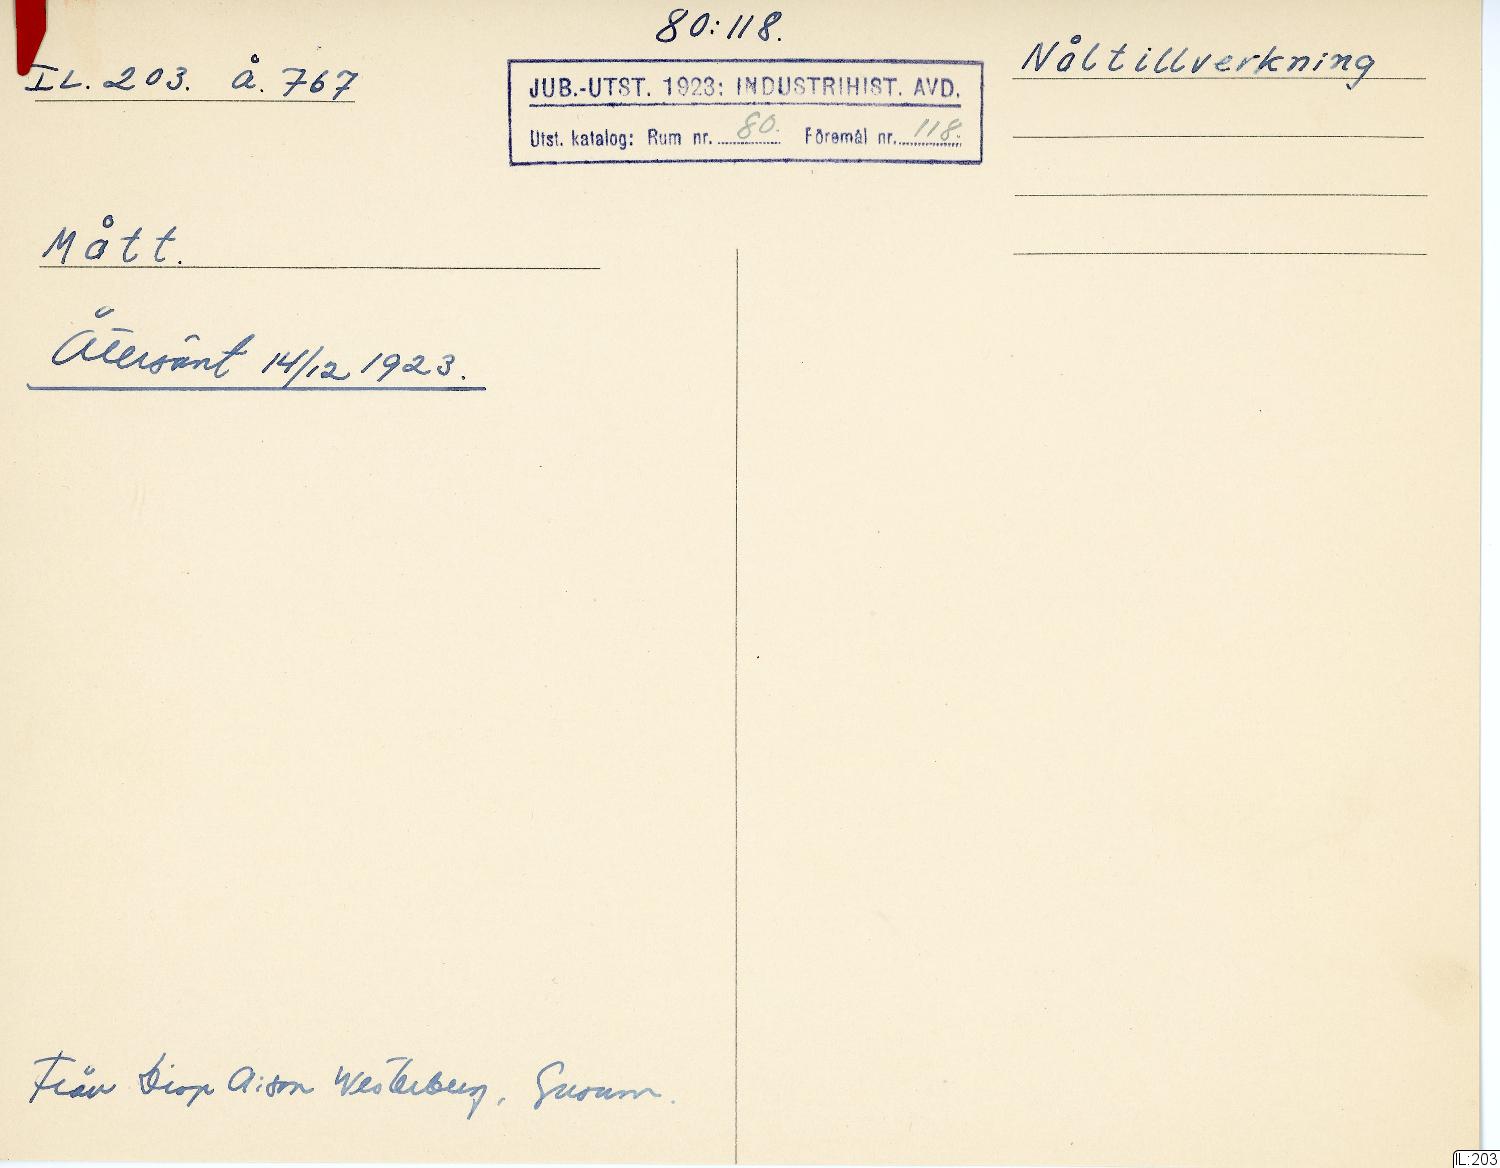 80:118.
IL. 203. Å. 767
Nåltillverkning
JUB.-UTST. 1923: INDUSTRIHIST. AVD.
Utst. katalog: Rum nr. 80. Föremål nr. 118.
Mått.
Återsänt 14/12 1923.
Från Disp A:son Westerberg, Gusum.
IL:203